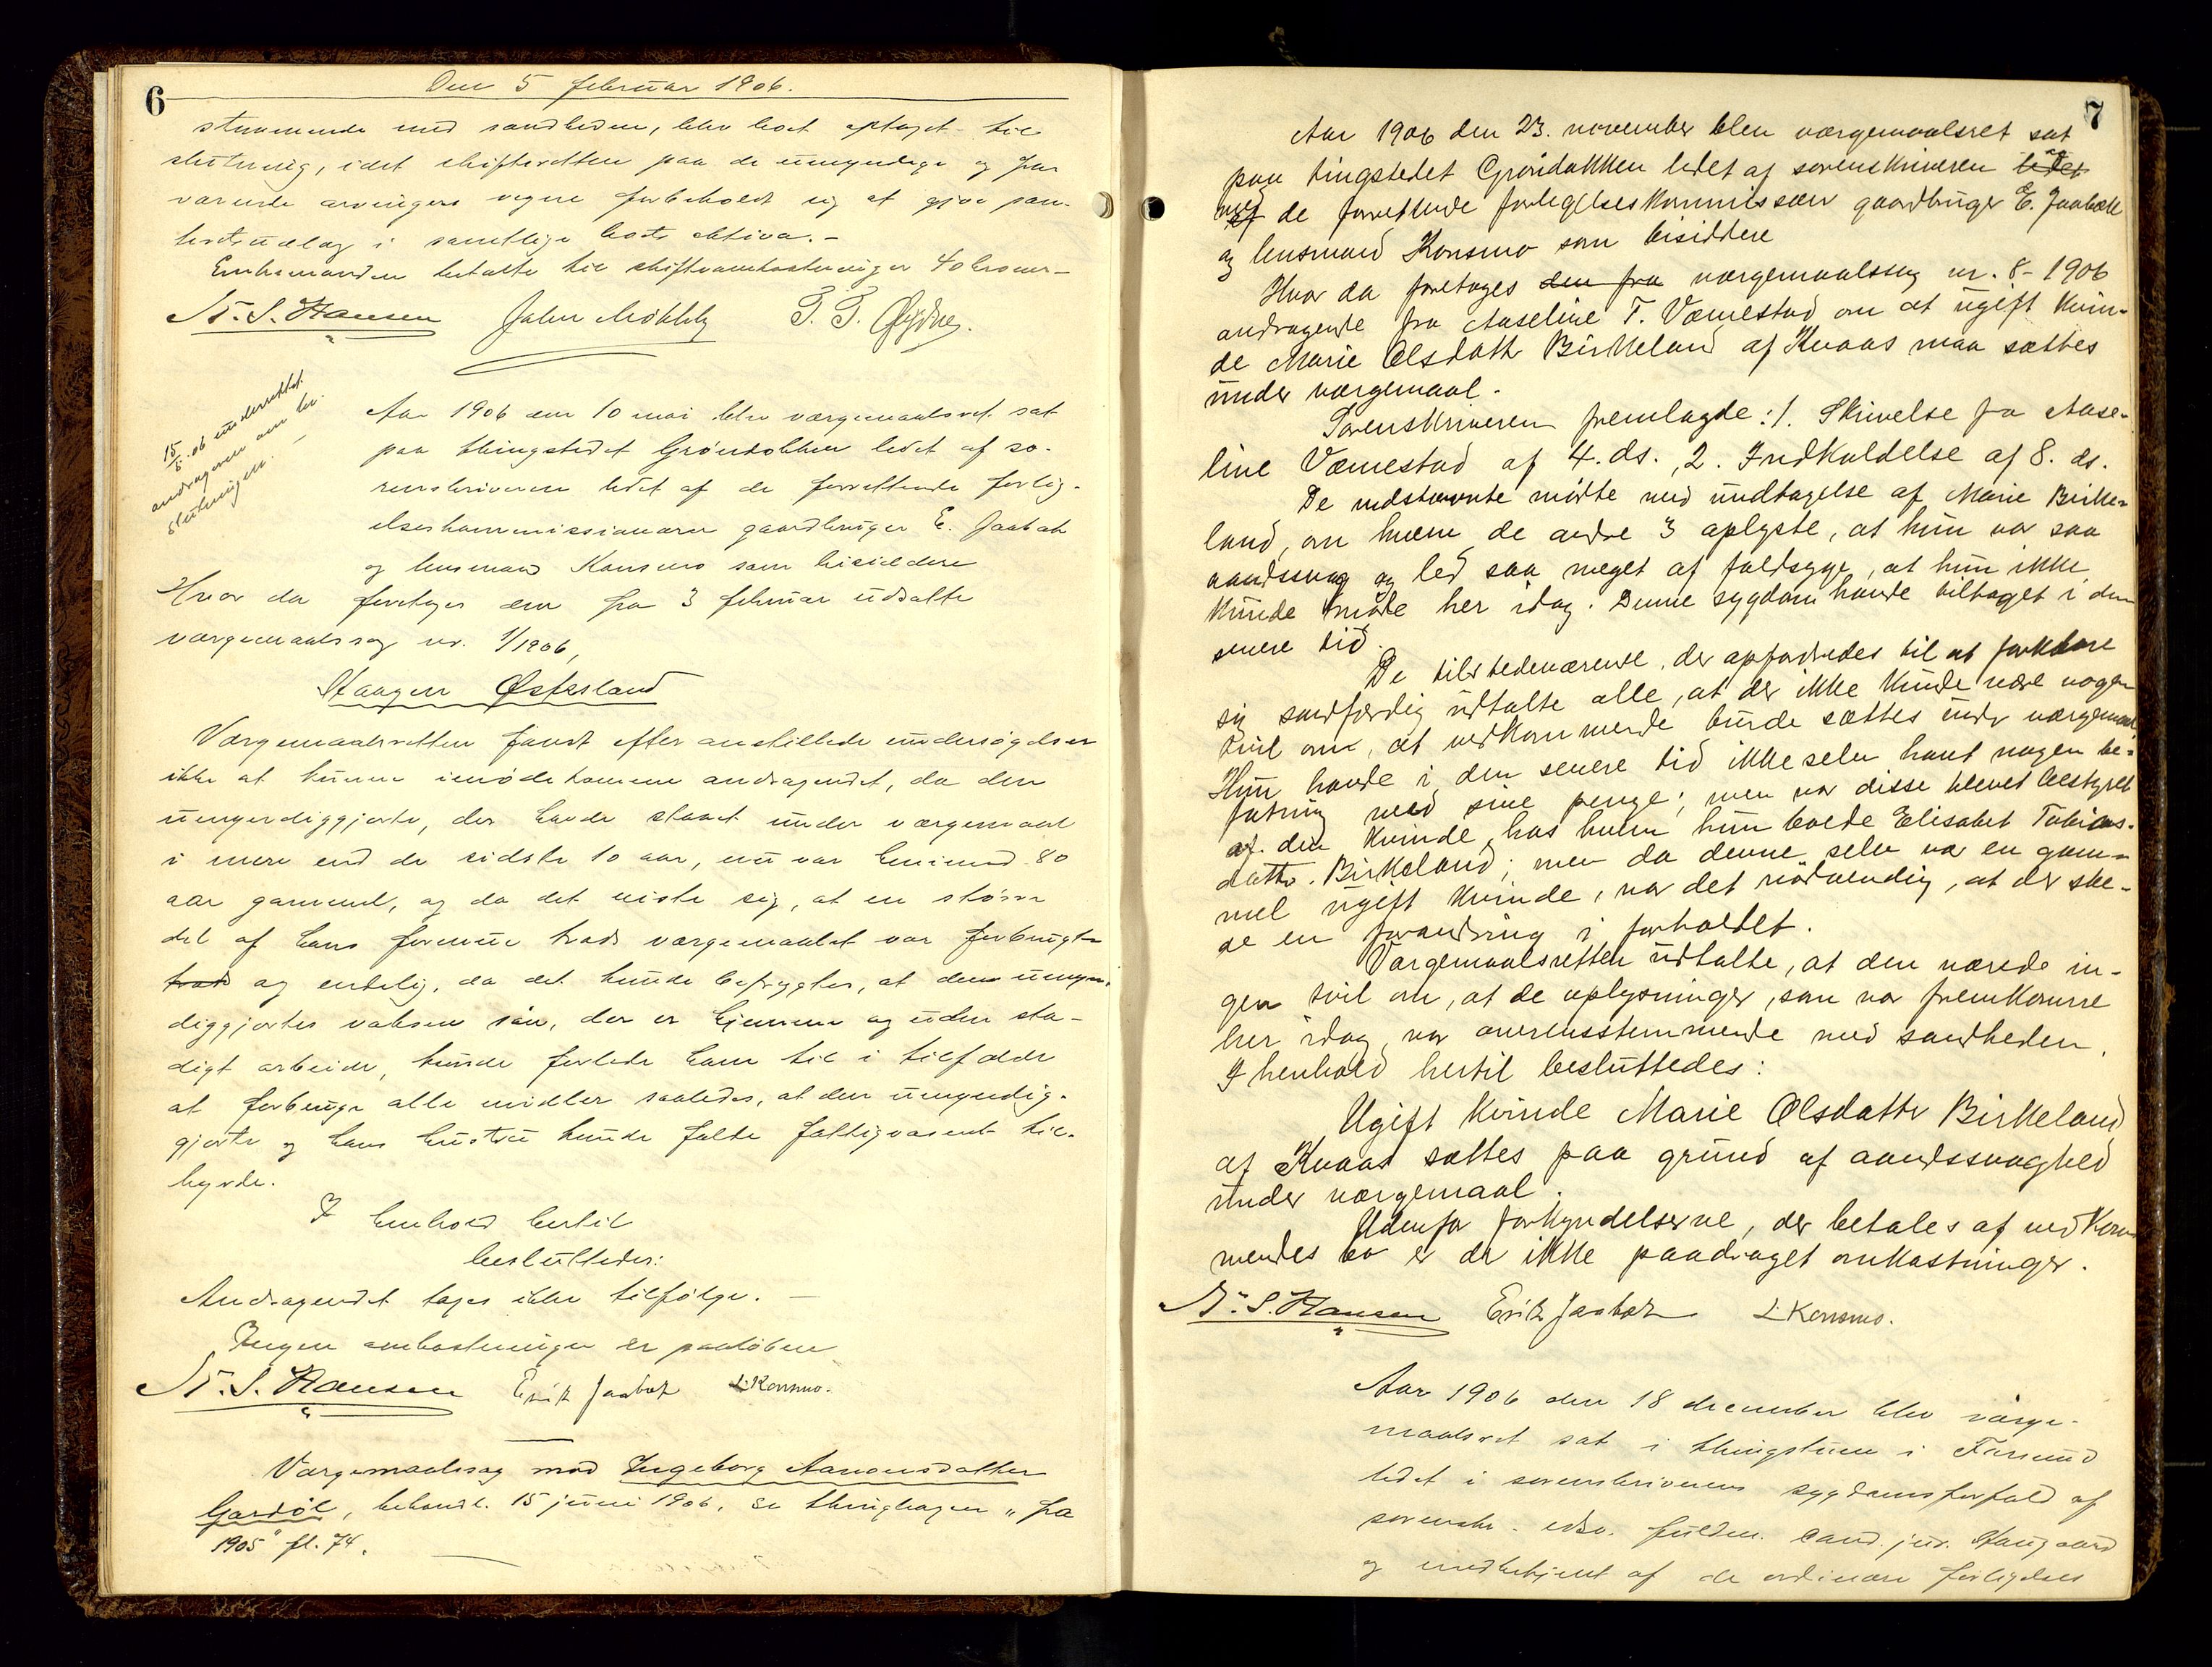 6
Den 5 februar 1906.
stemmende med sandheden, blev boet optaget til
slutning, idet skifteretten paa de umyndige og fra-
værende arvingers vegne forbeholdt sig at gjøre pan-
tentudlæg i samtlige boets aktiva.-
Enkemanden betalte til skifteomkostninger 40 kroner-
N. S. Hansen John Møkkelby T. T. Øydne.
15/5.06 underrettet
andrageren om be-
slutningen.
Aar 1906 den 10 mai blev værgemaalsret sat
paa thingstedet Grøndokken ledet af so-
renskriveren ledet af de forrettende forlig-
elseskommissionærer gaardbruger E. Jaabæk
og lensmand Konsmo som bisiddere
Hvor da foretoges den fra 3 februar udsatte
værgemaalssag nr. 1/1906,
Haagen Østesland
Værgemaalsretten fandt efter anstillede undersøgelser
ikke at kunne imødekomme andragendet, da den
umyndiggjorte, der havde staaet under værgemaal
i mere end de sidste 10 aar, nu var henimod 80
aar gammel, og da det viste sig, at en større
del af hans formue trods værgemaalet var forbrugt
trods og endelig, da det kunde befrygtes, at den umyn-
diggjortes voksne søn, der er hjemme og uden sta-
digt arbeide, kunde forlede ham til i tilfælde
at forbruge alle midler saaledes, at den umyndig-
gjorte og hans hustru kunde falde fattigvæsenet til
byrde.
I henhold hertil
besluttedes:
Andragendet tages ikke tilfølge. —
Ingen omkostninger er paaløbne
N. S. Hansen Erik Jaabæk L. Konsmo.
Værgemaalssag mod Ingeborg Aanonsdatter
Gardøl, behandl. 15 juni 1906, se thingbogen „fra
1905" fl. 74.
7
Aar 1906 den 23. november blev værgemaalsret sat
paa tingstedet Grøndokken ledet af sorenskriveren ledet
med af de forrettende forlegelseskommissærer gaardbruger E. Jaabæk
og lensmand Konsmo som bisiddere
Hvor da foretoges den fra værgemaalssag nr. 8-1906
andragende fra Aaseline T. Væmestad om at ugift kvin-
de Marie Olsdatter Birkeland af Kvaas maa sættes
under værgemaal.
Sorenskriveren fremlagde: 1. Skrivelse fra Aase-
line Væmestad af 4. ds., 2. Indkaldelse af 8. ds.
De indstævnte mødte med undtagelse af Marie Birke-
land, om hvem de andre 3 oplyste, at hun var saa
aandssvag og led saa meget af faldsyge, at hun ikke
kunde møde her idag. Denne sygdom havde tiltaget i den
senere tid.
De tilstedeværende, der opfordredes til at forklare
sig sandfærdig udtalte alle, at der ikke kunde være nogen
tvil om, at vedkommende burde sættes under værgemaal.
Hun havde i den senere tid ikke selv havt nogen be-
fatning med sine penge; men var disse blevet bestyret
af den kvinde, hos hvem hun boede Elisabet Tobias-
datter Birkeland; men da denne selv var en gam-
mel ugift kvinde, var det nødvendig, at der ske-
de en forandring i forholdet.
Værgemaalsretten udtalte, at den nærede in-
gen tvil om, at de oplysninger, som var fremkomne
her idag, var overensstemmende med sandheden.
I henhold hertil besluttedes:
Ugift kvinde Marie Olsdatter Birkeland
af Kvaas sættes paa grund af aandssvaghed
under værgemaal.
Udenfor forkyndelserne, der betales af vedkom-
mendes bo er der ikke paadraget omkostninger.
N. S. Hansen Erik Jaabæk L. Konsmo.
Aar 1906 den 18 december blev værge-
maalsret sat i thingstuen i Farsund
ledet i sorenskriverens sygdomsforfald af
sorenskr. edsv. fuldm. cand. jur. Haugaard
og medbetjent af de ordinære forligelses